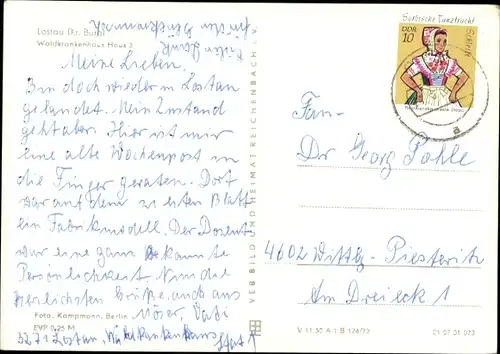 Lostau (Kr. Burg)
Waldkrankenhaus Haus 2
Meine Lieben.
Bin doch wieder in Lostau
gelandet. Mein Zustand
geht aber. Hier ist mir
eine alte Wochenpost in
die Finger geraten. Dort
war auf dem zweiten Blatt
ein Fabrikmodell. Der Dozent
war eine ganz bekannte
Persönlichkeit. Nun die
herzlichsten Grüße auch aus
Möser, Vati
Foto: Kampmann, Berlin
EVP 0,25 M
3271 Lostau, Waldkrankenhaus
VEB BILD UND HEIMAT REICHENBACH I. V.
Sorbische Tanztracht
DDR
10
Schleife
a
Fam.
Dr Georg Pohle
4602 Wittbg.-Piesteritz
Am Dreieck 1
V 11 50 A 1 B 124/73
01 07 01 073